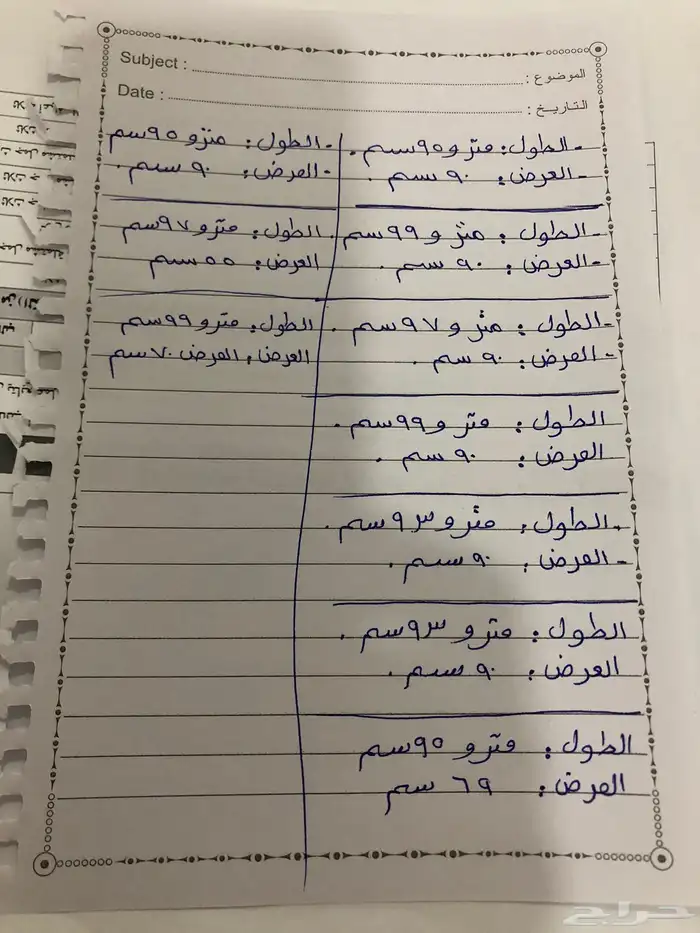 Subject :
الموضوع :
Date :
التاريخ :
- الطول : متر و ٩٥ سم .
- العرض : ٩٠ سم .
- الطول : متر و ٩٩ سم .
- العرض : ٩٠ سم .
- الطول : متر و ٩٧ سم .
- العرض : ٩٠ سم .
الطول : متر و ٩٩ سم .
العرض : ٩٠ سم .
- الطول : متر و ٩٣ سم .
- العرض : ٩٠ سم .
الطول : متر و ٩٣ سم .
العرض : ٩٠ سم .
الطول : متر و ٩٥ سم
العرض : ٦٩ سم
- الطول : متر و ٩٥ سم
- العرض : ٩٠ سم .
الطول : متر و ٩٧ سم
العرض : ٥٥ سم
الطول : متر و ٩٩ سم
العرض : العرض ٧٠ سم
حراج